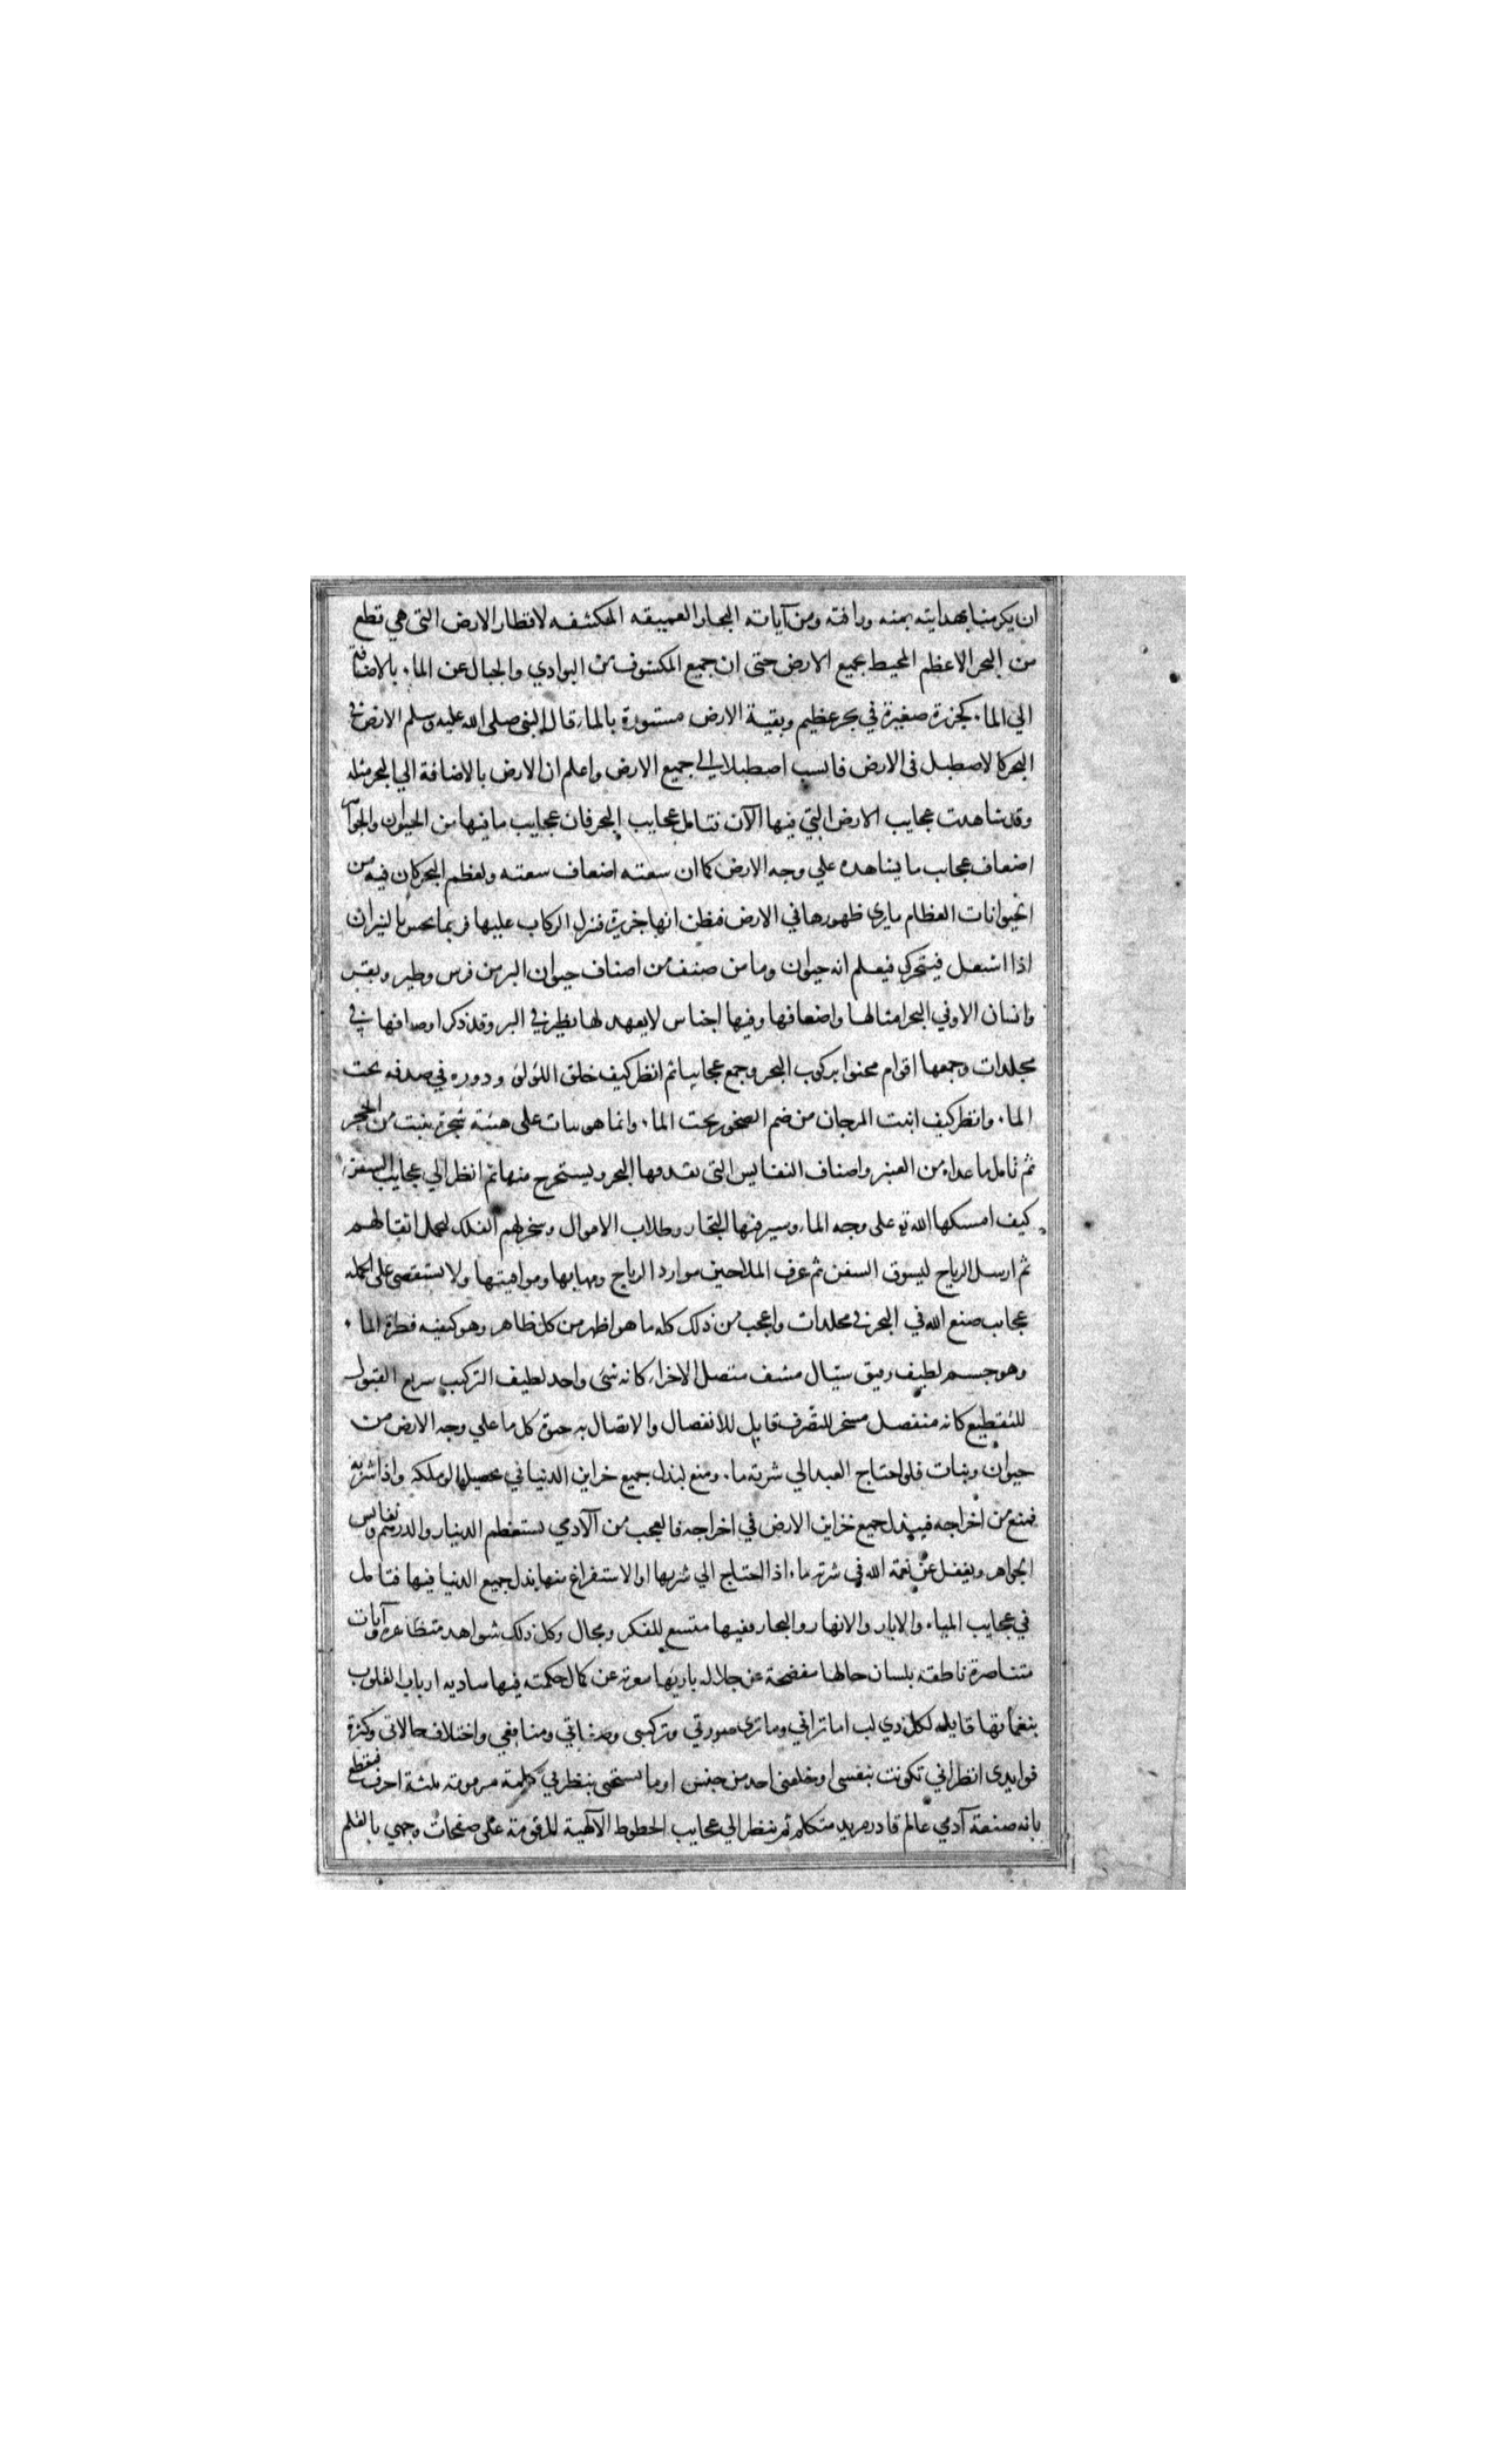 ان يكرمنا بهدايته بمنه ورافته ومن آياته البحار العميقه المكتنفه لاقطار الارض التى هي قطع
من البحر الاعظم المحيط بجميع الارض حتى ان جميع المكشوف من البوادي والجبال عن الماء بالاضافة
الي الماء كجزيرة صغيرة في بحر عظيم وبقية الارض مستورة بالماء قال النبى صلى الله عليه وسلم الارض في
البحر كالاصطبل فى الارض فانسب اصطبلا الي جميع الارض واعلم ان الارض بالاضافة الي البحر مثله
وقد شاهدت عجايب الارض التي فيها الآن فتامل عجايب البحر فان عجايب ما فيها من الحيوان والجواهر
اضعاف عجايب ما يشاهده علي وجه الارض كما ان سعته اضعاف سعته ولعظم البحر كان فيه من
الحيوانات العظام ما يرى ظهورها في الارض فيظن انها جزيرة فنزل الركاب عليها فربما يحس بالنيران
اذا اشتعل فيتحرك فيعلم انه حيوان وما من صنف من اصناف حيوان البر من فرس وطير وبقر
وانسان الا وفي البحر امثالها واضعافها وفيها اجناس لا يعهد لها نظير في البر وقد ذكر اوصافها في
مجلدات وجمعها اقوام عنوا بركوب البحر وجمع عجايبه ثم انظر كيف خلق اللؤلؤ ودوره في صدفه تحت
الماء وانظر كيف انبت المرجان من صم الصخور تحت الماء وانما هو نبات على هيئة شجرة ينبت من الحجر
ثم تامل ما عداه من العنبر واصناف النفايس التى يقدفها البحر ويستخرج منها ثم انظر الي عجايب السفن
كيف امسكها الله تع على وجه الماء وسير فيها التجار وطلاب الاموال وسخر لهم الفلك لتحمل اثقالهم
ثم ارسل الرياح ليسوق السفن ثم عرف الملاحين موارد الرياح ومهابها ومواقيتها ولا يستقصى على الجمله
عجايب صنع الله في البحر في مجلدات واعجب من ذلك كله ما هو اظهر من كل ظاهر وهو كيفيه قطرة الماء
وهو جسم لطيف رقيق سيّال مشف متصل الاجزاء كانه شئ واحد لطيف التركيب سريع القبول
للتقطيع كانه منفصل مسخر للتصرف قابل للانفصال والاتصال به حيوة كل ما علي وجه الارض من
حيوان ونبات فلو احتاج العبد الي شربة ماء ومنع لبذل جميع خزاين الدنيا في تحصيلها لو ملكه واذا شربه
فمنع من اخراجه فيبذل جميع خزاين الارض في اخراجه فالعجب من الآدمي يستعظم الدينار والدرهم ونفايس
الجواهر ويغفل عن نعمة الله في شربة ماء اذا احتاج الي شربها او الاستفراغ منها بذل جميع الدنيا فيها فتامل
في عجايب المياه والابار والانهار والبحار ففيها متسع للفكر ومجال وكل ذلك شواهد متظاهره وآيات
متناصرة ناطقه بلسان حالها مفصحة عن جلال باريها معربة عن كمال حكمته فيها مناديه ارباب القلوب
بنغماتها قايله لكل ذي لب اما تراني وما ترى صورتي وتركيبى وصفاتي ومنافعي واختلاف حالاتى وكثرة
فوايدى انظر اني تكونت بنفسى او خلقنى احد من جنس اوما يستحي ينظر في كلمة مرموقه ثلثة احرف فيقطع
بانه صنعة آدمي عالم قادر مريد متكلم ثم ينظر الي عجايب الخطوط الآلهية المرقومة على صفحات وجهي بالقلم